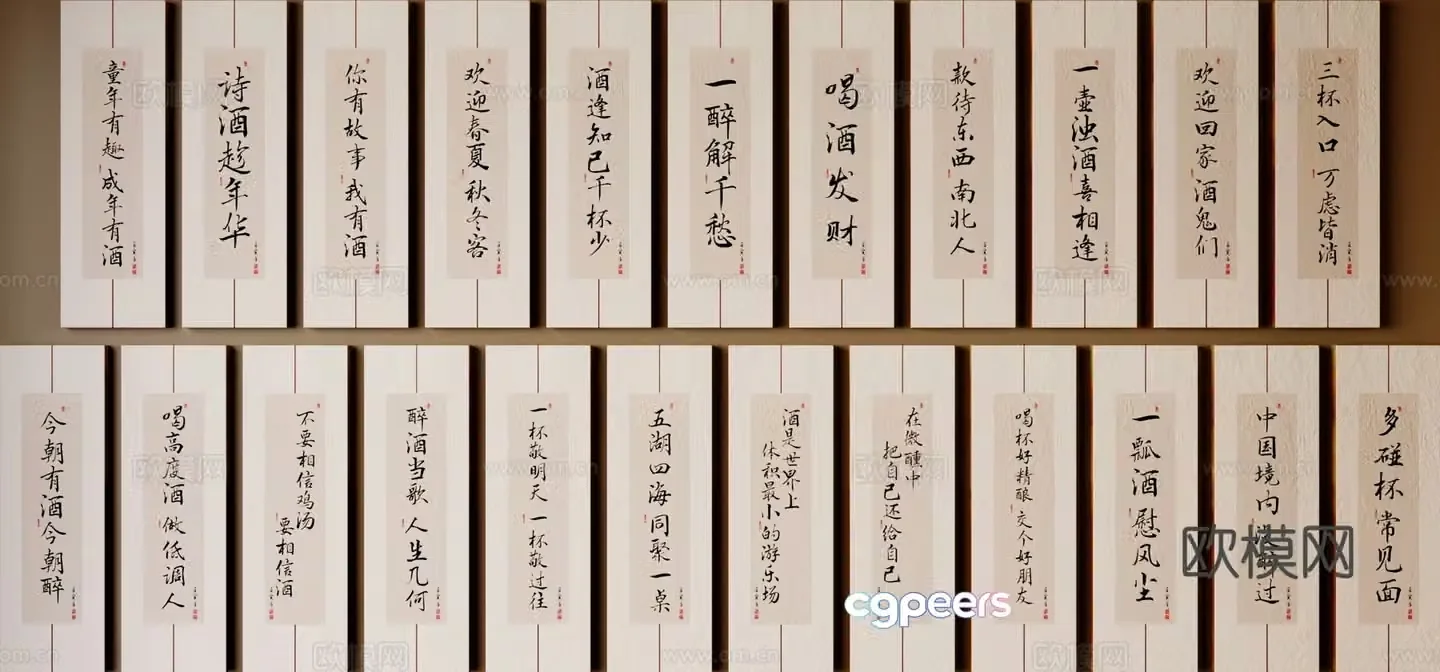 童年有趣 成年有酒
诗酒趁年华
你有故事 我有酒
欢迎春夏秋冬客
酒逢知己千杯少
一醉解千愁
喝酒发财
款待东西南北人
一壶浊酒喜相逢
欢迎回家 酒鬼们
三杯入口 万虑皆消
今朝有酒今朝醉
喝高度酒 做低调人
不要相信鸡汤
要相信酒
醉酒当歌 人生几何
一杯敬明天 一杯敬过往
五湖四海同聚一桌
酒是世界上
体积最小的游乐场
在微醺中
把自己还给自己
喝杯好精酿 交个好朋友
一瓢酒 慰风尘
中国境内 过
多碰杯 常见面
欧模网
cgpeers
www.om.cn